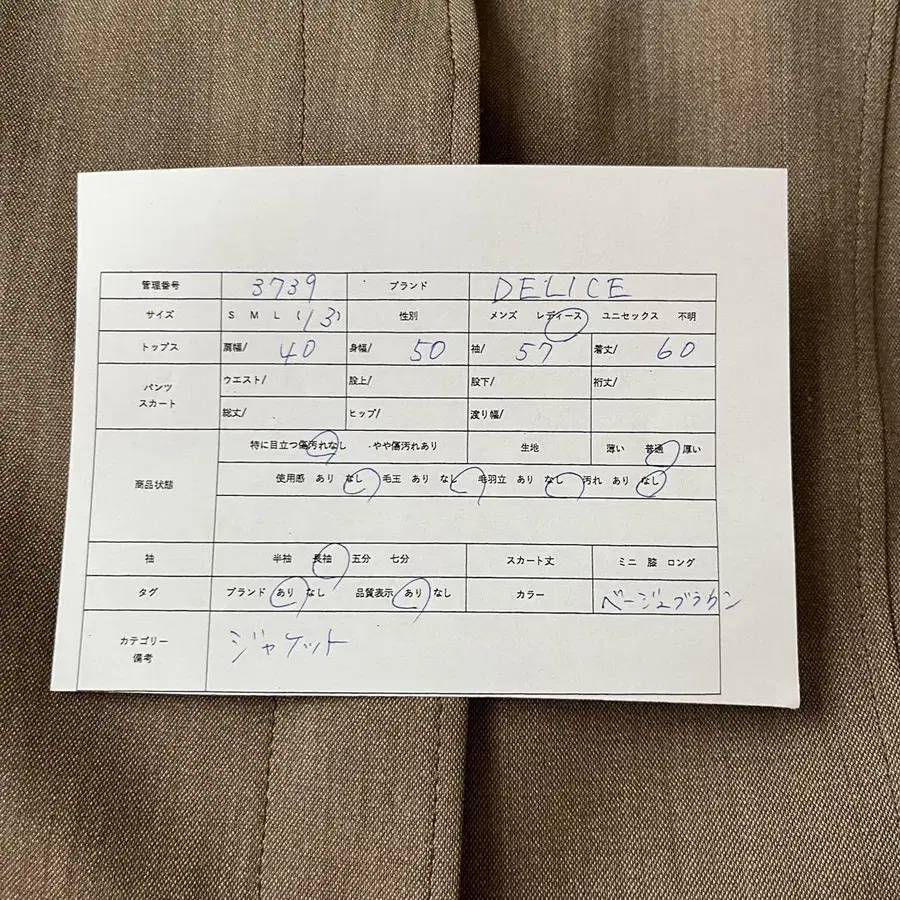 管理番号 3739 ブランド DELICE
サイズ S M L (13) 性別 メンズ レディース ユニセックス 不明
トップス 肩幅/ 40 身幅/ 50 袖/ 57 着丈/ 60
パンツ スカート ウエスト/ 股上/ 股下/ 裄丈/
総丈/ ヒップ/ 渡り幅/
特に目立つ傷汚れなし やや傷汚れあり 生地 薄い 普通 厚い
商品状態 使用感 あり なし 毛玉 あり なし 毛羽立 あり なし 汚れ あり なし
袖 半袖 長袖 五分 七分 スカート丈 ミニ 膝 ロング
タグ ブランド あり なし 品質表示 あり なし カラー ベージュブラウン
カテゴリー 備考 ジャケット